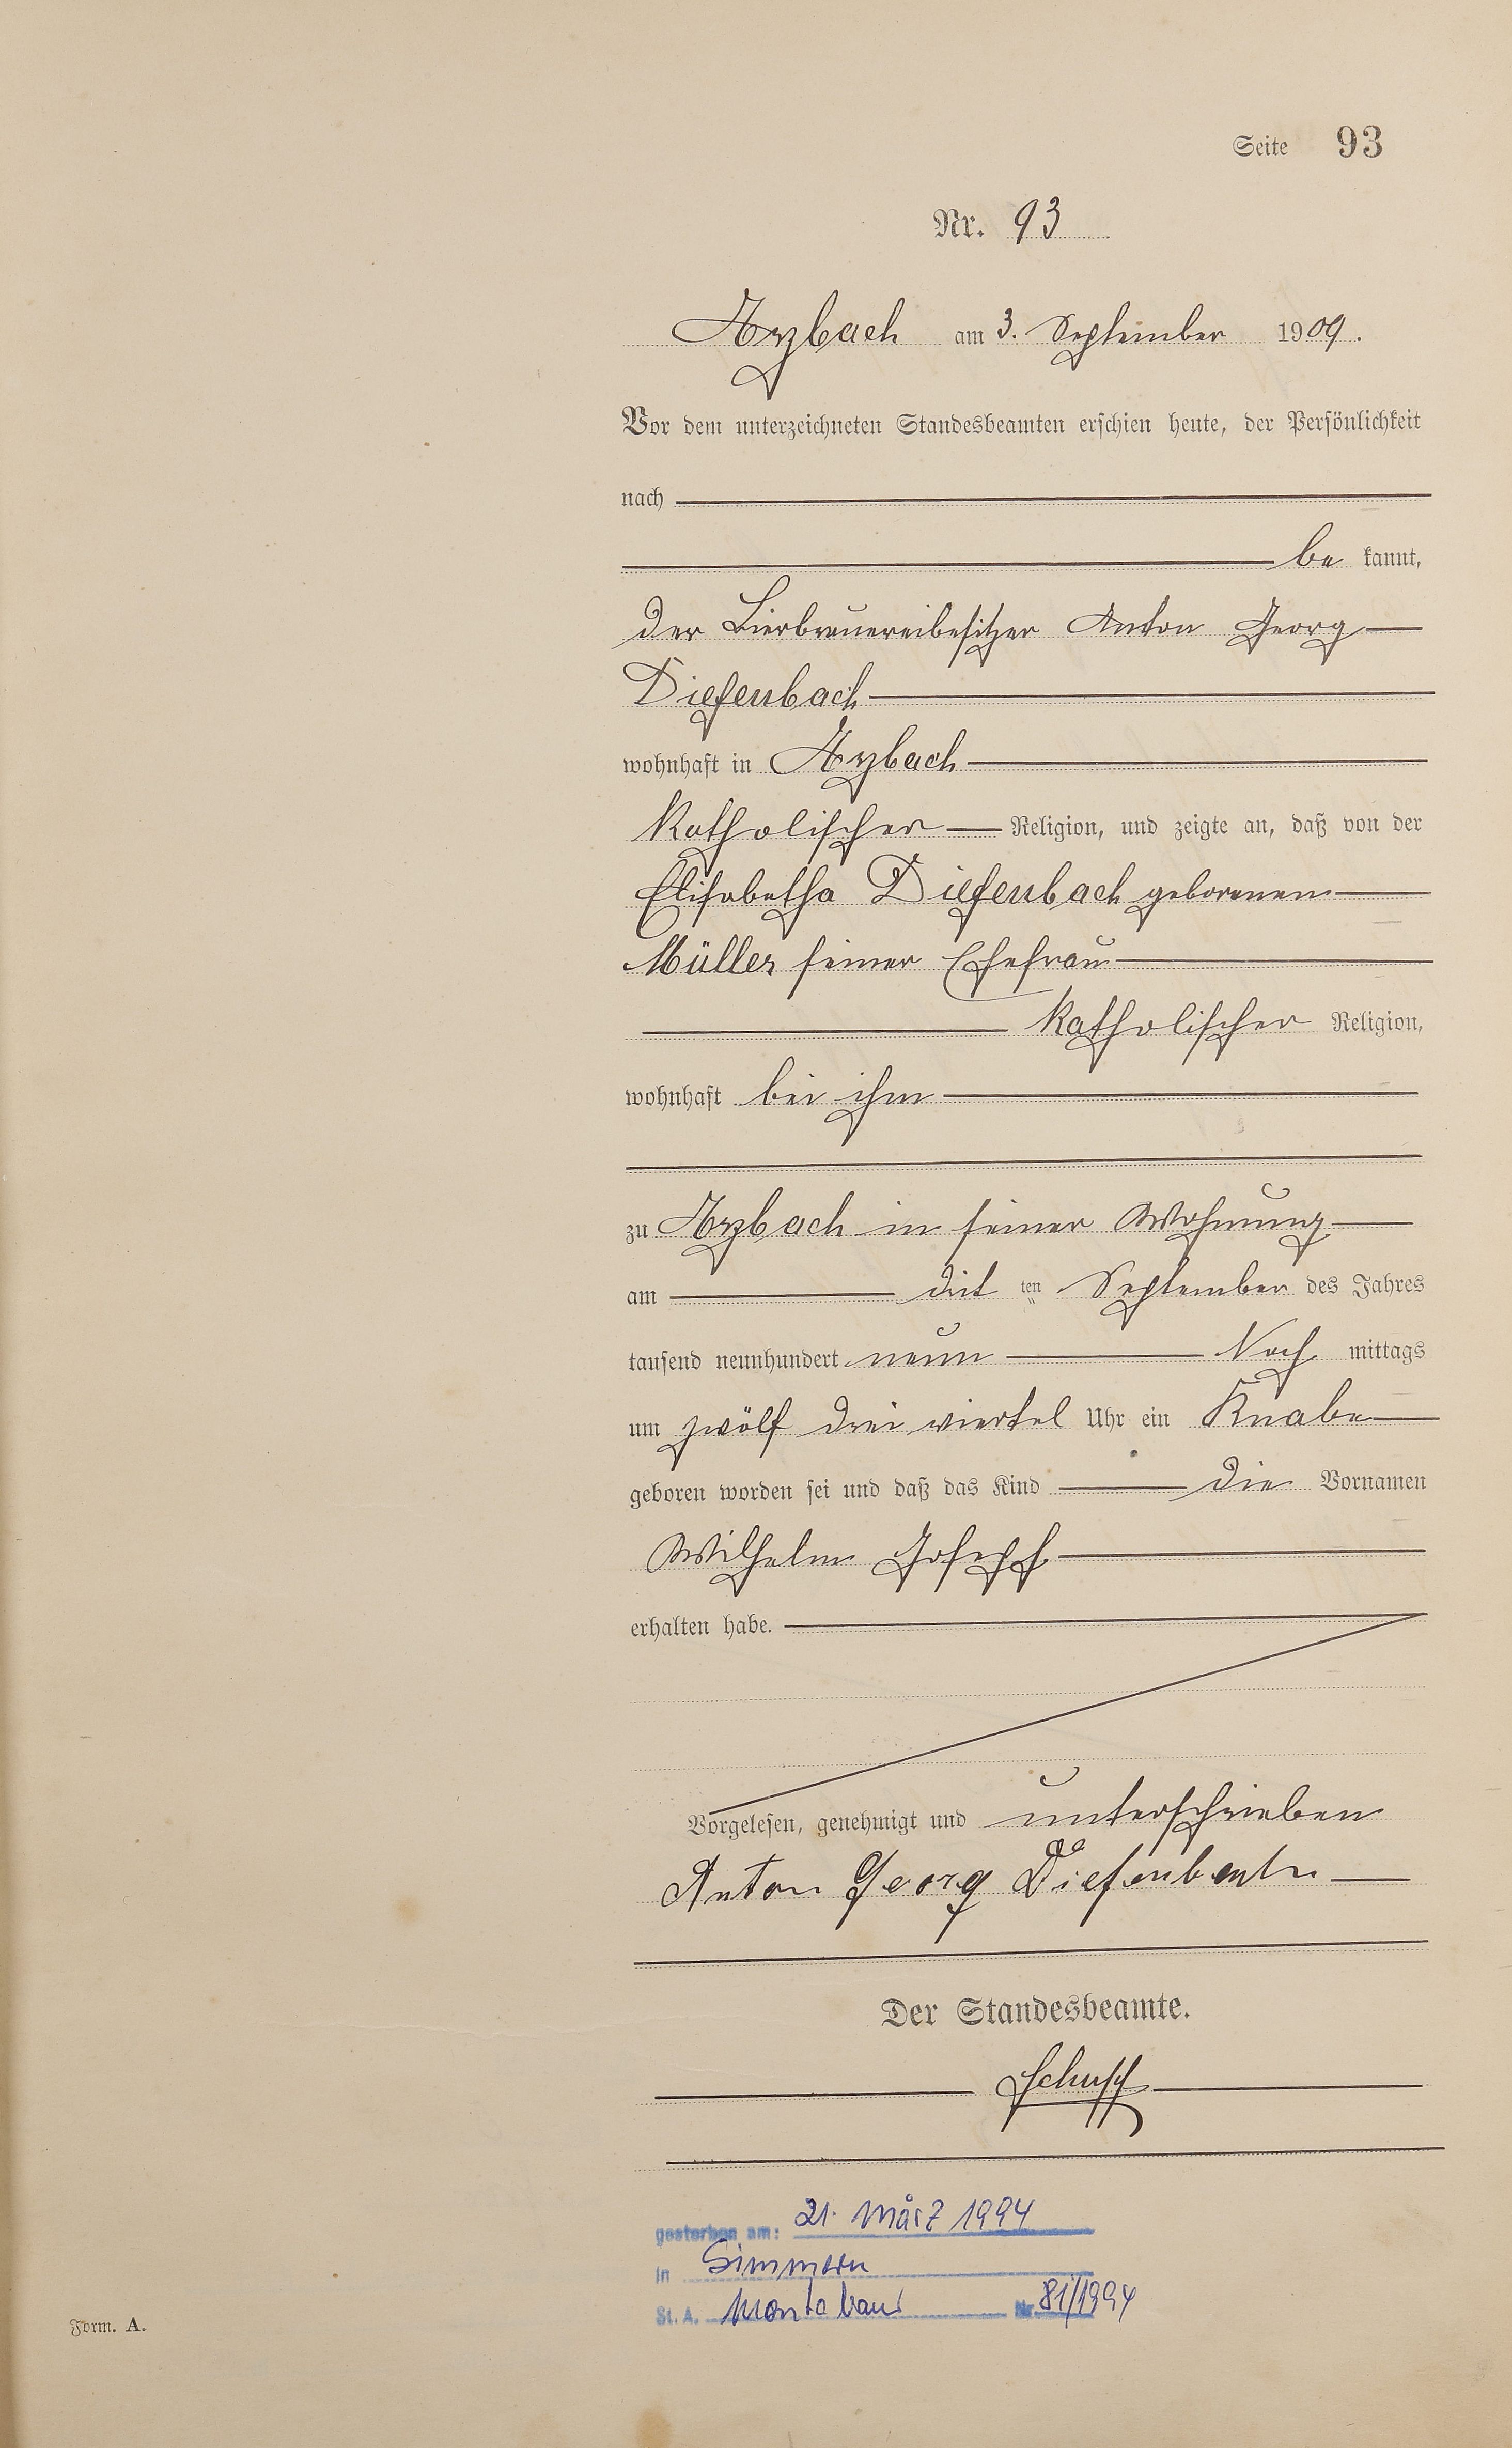 Seite 93
Nr. 93
Arzbach am 3. September 1909.
Vor dem unterzeichneten Standesbeamten erschien heute, der Persönlichkeit
nach
be kannt,
der Bierbrauereibesitzer Anton Georg
Diefenbach
wohnhaft in Arzbach
katholischer Religion, und zeigte an, daß von der
Elisabetha Diefenbach geborenen
Müller seiner Ehefrau
katholischer Religion,
wohnhaft bei ihm
zu Arzbach in seiner Wohnung
am drit ten September des Jahres
tausend neunhundert neun Nach mittags
um zwölf drei viertel Uhr ein Knabe
geboren worden sei und daß das Kind die Vornamen
Wilhelm Joseph
erhalten habe.
Vorgelesen, genehmigt und unterschrieben
Anton Georg Diefenbach
Der Standesbeamte.
gestorben am: 21. März 1994
in Simmern
St. A. Montabaur Nr. 81/1994
Form. A.